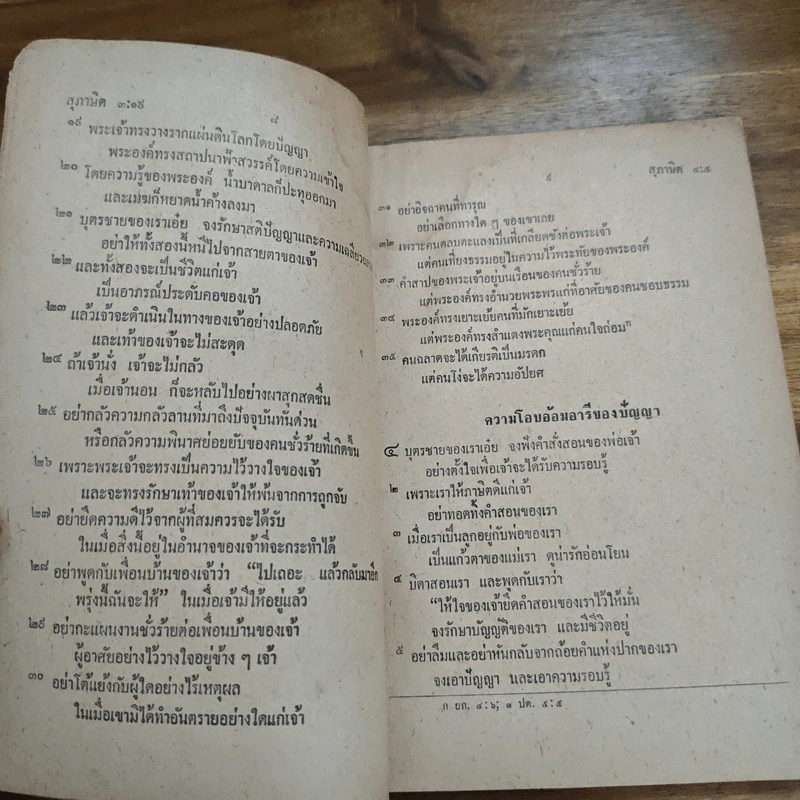 สุภาษิต ๓:๑๙
๘
๑๙ พระเจ้าทรงวางรากแผ่นดินโลกโดยปัญญา
พระองค์ทรงสถาปนาฟ้าสวรรค์โดยความเข้าใจ
๒๐ โดยความรู้ของพระองค์ น้ำบาดาลก็ปะทุออกมา
และเมฆก็หยาดน้ำค้างลงมา
๒๑ บุตรชายของเราเอ๋ย จงรักษาสติปัญญาและความเฉลียวฉลาด
อย่าให้ทั้งสองนี้หนีไปจากสายตาของเจ้า
๒๒ และทั้งสองจะเป็นชีวิตแก่เจ้า
เป็นอาภรณ์ประดับคอของเจ้า
๒๓ แล้วเจ้าจะดำเนินในทางของเจ้าอย่างปลอดภัย
และเท้าของเจ้าจะไม่สะดุด
๒๔ ถ้าเจ้านั่ง เจ้าจะไม่กลัว
เมื่อเจ้านอน ก็จะหลับไปอย่างผาสุกสดชื่น
๒๕ อย่ากลัวความกลัวลานที่มาถึงปัจจุบันทันด่วน
หรือกลัวความพินาศย่อยยับของคนชั่วร้ายที่เกิดขึ้น
๒๖ เพราะพระเจ้าจะทรงเป็นความไว้วางใจของเจ้า
และจะทรงรักษาเท้าของเจ้าให้พ้นจากการถูกจับ
๒๗ อย่ายึดความดีไว้จากผู้ที่สมควรจะได้รับ
ในเมื่อสิ่งนี้อยู่ในอำนาจของเจ้าที่จะกระทำได้
๒๘ อย่าพูดกับเพื่อนบ้านของเจ้าว่า “ไปเถอะ แล้วกลับมาอีก
พรุ่งนี้ฉันจะให้” ในเมื่อเจ้ามีให้อยู่แล้ว
๒๙ อย่ากะแผนงานชั่วร้ายต่อเพื่อนบ้านของเจ้า
ผู้อาศัยอย่างไว้วางใจอยู่ข้าง ๆ เจ้า
๓๐ อย่าโต้แย้งกับผู้ใดอย่างไร้เหตุผล
ในเมื่อเขามิได้ทำอันตรายอย่างใดแก่เจ้า
๙
สุภาษิต ๔:๕
๓๑ อย่าอิจฉาคนที่ทารุณ
อย่าเลือกทางใด ๆ ของเขาเลย
๓๒ เพราะคนตลบตะแลงเป็นที่เกลียดชังต่อพระเจ้า
แต่คนเที่ยงธรรมอยู่ในความไว้พระทัยของพระองค์
๓๓ คำสาปของพระเจ้าอยู่บนเรือนของคนชั่วร้าย
แต่พระองค์ทรงอำนวยพระพรแก่ที่อาศัยของคนชอบธรรม
๓๔ พระองค์ทรงเยาะเย้ยคนที่มักเยาะเย้ย
แต่พระองค์ทรงสำแดงพระคุณแก่คนใจถ่อมก
๓๕ คนฉลาดจะได้เกียรติเป็นมรดก
แต่คนโง่จะได้ความอัปยศ
ความโอบอ้อมอารีของปัญญา
๔ บุตรชายของเราเอ๋ย จงฟังคำสั่งสอนของพ่อเจ้า
อย่างตั้งใจเพื่อเจ้าจะได้รับความรอบรู้
๒ เพราะเราให้ภาษิตดีแก่เจ้า
อย่าทอดทิ้งคำสอนของเรา
๓ เมื่อเราเป็นลูกอยู่กับพ่อของเรา
เป็นแก้วตาของแม่เรา ดูน่ารักอ่อนโยน
๔ บิดาสอนเรา และพูดกับเราว่า
“ให้ใจของเจ้ายึดคำสอนของเราไว้ให้มั่น
จงรักษาบัญญัติของเรา และมีชีวิตอยู่
๕ อย่าลืมและอย่าหันกลับจากถ้อยคำแห่งปากของเรา
จงเอาปัญญา และเอาความรอบรู้
ก ยก. ๔:๖; ๑ ปต. ๕:๕